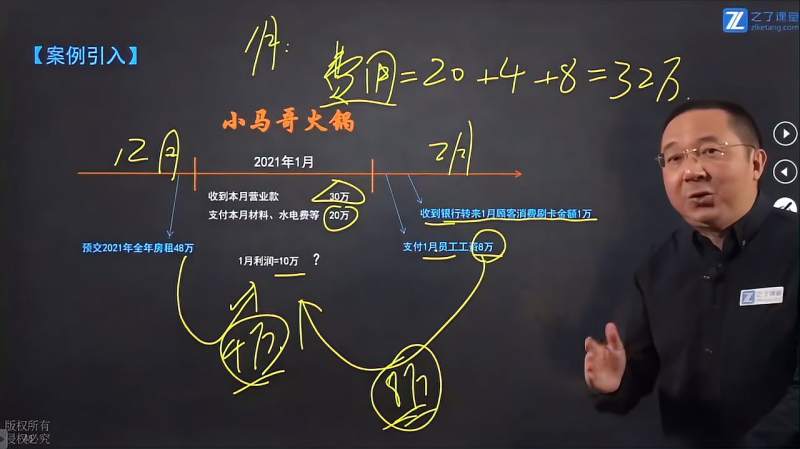 之了课堂
zlketang.com
【案例引入】
1月:
费用=20+4+8=32万
小马哥火锅
12月
2021年1月
2月
收到本月营业款 30万
支付本月材料、水电费等 20万
收到银行转来1月顾客消费刷卡金额1万
预交2021年全年房租48万
支付1月员工工资8万
1月利润=10万 ?
4万
8万
之了课堂
版权所有
侵权必究